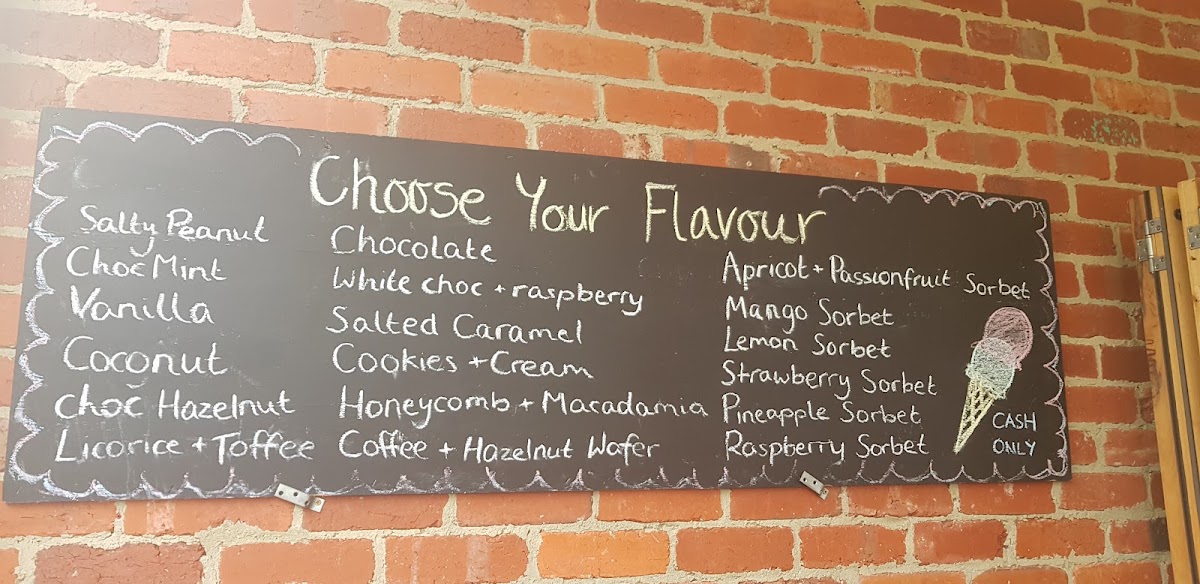 Choose Your Flavour
Salty Peanut
Choc Mint
Vanilla
Coconut
Choc Hazelnut
Licorice + Toffee
Chocolate
White choc + raspberry
Salted Caramel
Cookies + Cream
Honeycomb + Macadamia
Coffee + Hazelnut Wafer
Apricot + Passionfruit Sorbet
Mango Sorbet
Lemon Sorbet
Strawberry Sorbet
Pineapple Sorbet
Raspberry Sorbet
CASH
ONLY